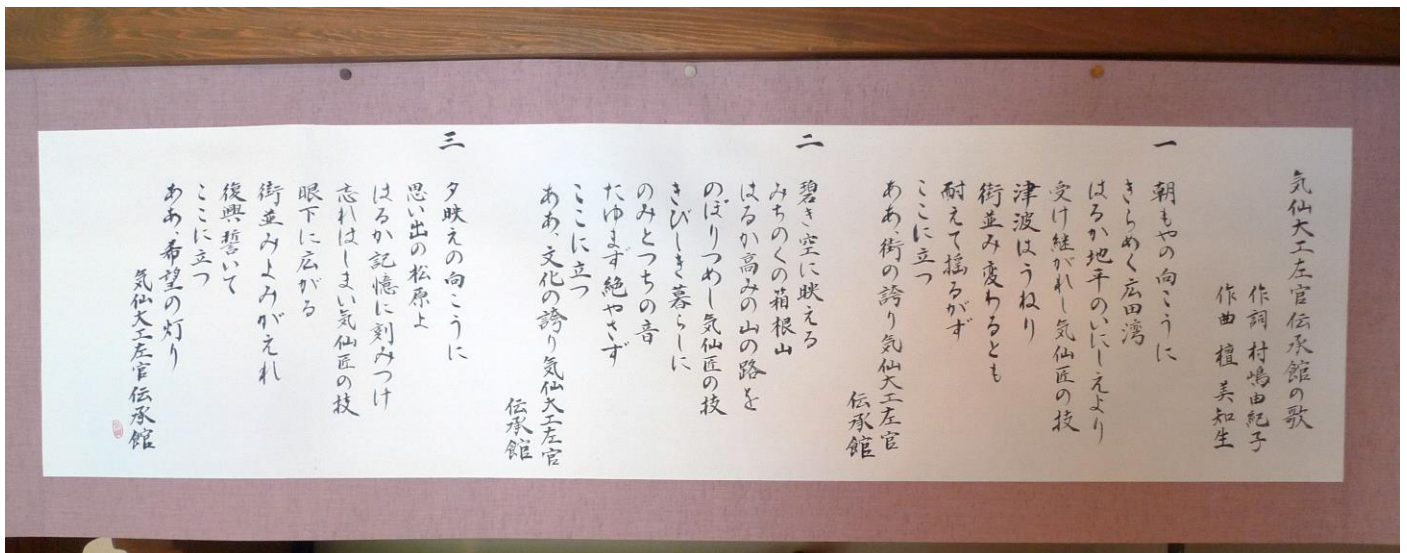 気仙大工左官伝承館の歌
作詞 村嶋由紀子
作曲 檀 美知生
一
朝もやの向こうに
きらめく広田湾
はるか地平のいにしえより
受け継がれし気仙匠の技
津波はうねり
街並み変わるとも
耐えて揺るがず
ここに立つ
ああ、街の誇り気仙大工左官
伝承館
二
碧き空に映える
みちのくの箱根山
はるか高みの山の路を
のぼりつめし気仙匠の技
きびしき暮らしに
のみとつちの音
たゆまず絶やさず
ここに立つ
ああ、文化の誇り気仙大工左官
伝承館
三
夕映えの向こうに
思い出の松原よ
はるか記憶に刻みつけ
忘れはしまい気仙匠の技
眼下に広がる
街並みよみがえれ
復興誓いて
ここに立つ
ああ、希望の灯り
気仙大工左官伝承館